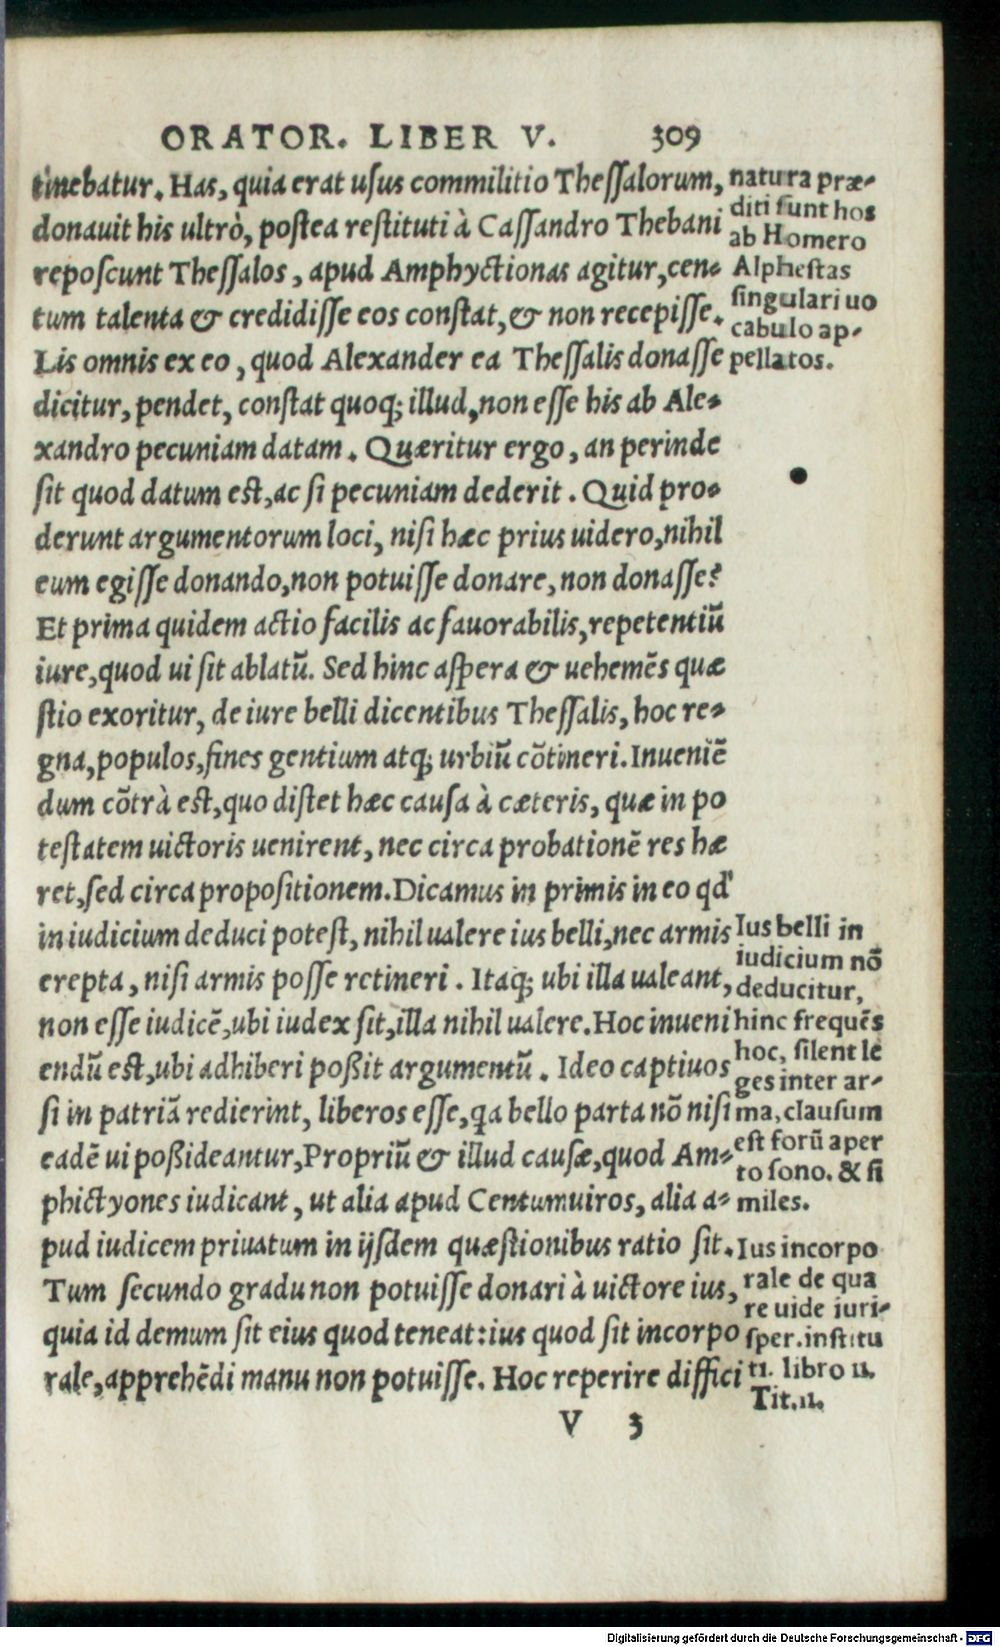 ORATOR. LIBER V. 309
tinebatur. Has, quia erat usus commilitio Thessalorum,
donauit his ultrò, postea restituti à Cassandro Thebani
reposcunt Thessalos, apud Amphyctionas agitur, cen-
tum talenta & credidisse eos constat, & non recepisse.
Lis omnis ex eo, quod Alexander ea Thessalis donasse
dicitur, pendet, constat quoq; illud, non esse his ab Ale-
xandro pecuniam datam. Quæritur ergo, an perinde
sit quod datum est, ac si pecuniam dederit. Quid pro-
derunt argumentorum loci, nisi hæc prius uidero, nihil
eum egisse donando, non potuisse donare, non donasse?
Et prima quidem actio facilis ac fauorabilis, repetentiũ
iure, quod ui sit ablatũ. Sed hinc aspera & uehemẽs quæ
stio exoritur, de iure belli dicentibus Thessalis, hoc re-
gna, populos, fines gentium atq; urbiũ cõtineri. Inueniẽ
dum cõtrà est, quo distet hæc causa à cæteris, quæ in po
testatem uictoris uenirent, nec circa probationẽ res hæ
ret, sed circa propositionem. Dicamus in primis in eo qd'
in iudicium deduci potest, nihil ualere ius belli, nec armis
erepta, nisi armis posse retineri. Itaq; ubi illa ualeant,
non esse iudicẽ, ubi iudex sit, illa nihil ualere. Hoc inueni
endũ est, ubi adhiberi poßit argumentũ. Ideo captiuos
si in patriã redierint, liberos esse, qa bello parta nõ nisi
eadẽ ui poßideantur, Propriũ & illud causæ, quod Am-
phictyones iudicant, ut alia apud Centumuiros, alia a-
pud iudicem priuatum in ijsdem quæstionibus ratio sit.
Tum secundo gradu non potuisse donari à uictore ius,
quia id demum sit eius quod teneat: ius quod sit incorpo
rale, apprehẽdi manu non potuisse. Hoc reperire diffici
V 3
natura præ-
diti sunt hos
ab Homero
Alphestas
singulari uo
cabulo ap-
pellatos.
Ius belli in
iudicium nõ
deducitur,
hinc frequẽs
hoc, silent le
ges inter ar-
ma, clausum
est forũ aper
to sono. & si
miles.
Ius incorpo
rale de qua
re uide iuri-
sper. institu
ti. libro ii.
Tit. ii.
Digitalisierung gefördert durch die Deutsche Forschungsgemeinschaft - DFG